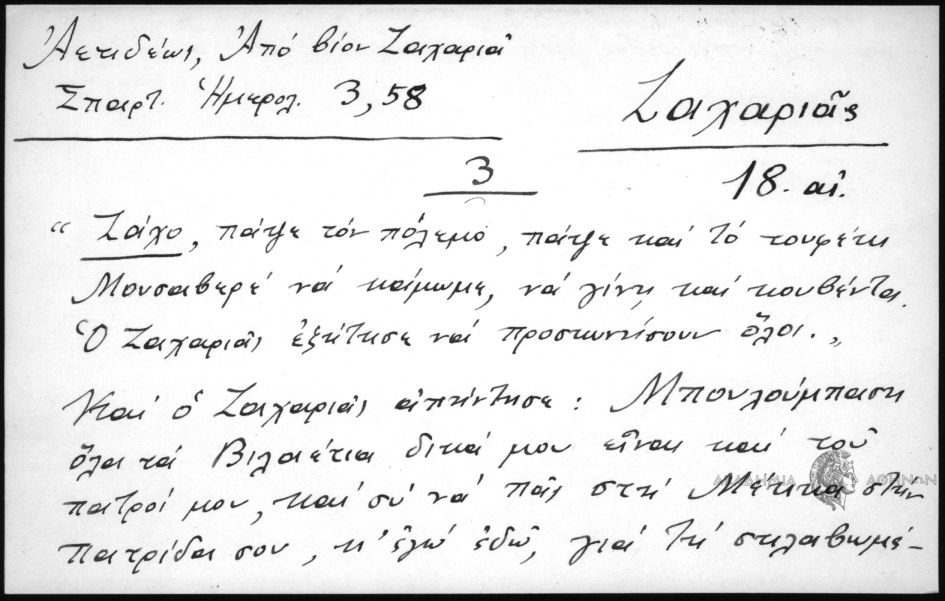 Ἀετιδέως, Ἀπό βίον Ζαχαριᾶ
Σπαρτ. Ἡμερολ. 3,58
Ζαχαριᾶς
18. αἰ.
3
"Ζάχο, πάψε τόν πόλεμο, πάψε καί τό τουφέκι
Μουσαβερέ νά κάμωμε, νά γίνῃ καί κουβέντα.
Ὁ Ζαχαριᾶς ἐξήτησε νά προσκυνήσουν ὅλοι."
Καί ὁ Ζαχαριᾶς ἀπήντησε: Μπουλούμπαση
ὅλα τά Βιλαέτια δικά μου εἶναι καί τοῦ
πατρός μου, καί σύ νά πᾶς στή Μέκκα στήν
πατρίδα σου, κ' ἐγώ ἐδῶ, γιά τή σκλαβωμέ-
ΑΚΑΔΗΜΙΑ ΑΘΗΝΩΝ